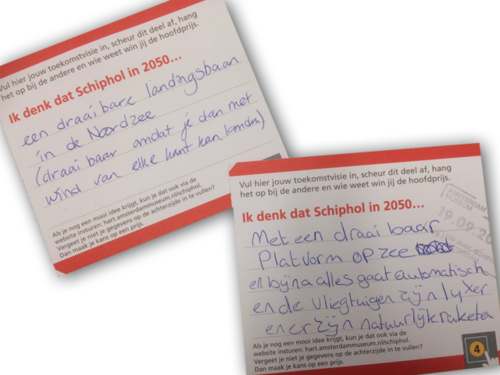 Vul hier jouw toekomstvisie in, scheur dit deel af, hang
het op bij de andere en wie weet win jij de hoofdprijs.
Ik denk dat Schiphol in 2050...
een draaibare landingsbaan
in de Noordzee
(draaibaar omdat je dan met
wind van elke kant kan landen)
Als je nog een mooi idee krijgt, kun je dat ook via de
website insturen: hart.amsterdammuseum.nl/schiphol.
Vergeet je niet je gegevens op de achterzijde in te vullen?
Dan maak je kans op een prijs.
Vul hier jouw toekomstvisie in, scheur dit deel af, hang
het op bij de andere en wie weet win jij de hoofdprijs.
Ik denk dat Schiphol in 2050...
19.09.2
Met een draaibaar
Platvorm op zee
en bijna alles gaat automatisch
en de vliegtuigen zijn lyxer
en er zijn natuurlijk raketen
Als je nog een mooi idee krijgt, kun je dat ook via de
website insturen: hart.amsterdammuseum.nl/schiphol.
Vergeet je niet je gegevens op de achterzijde in te vullen?
Dan maak je kans op een prijs.
4